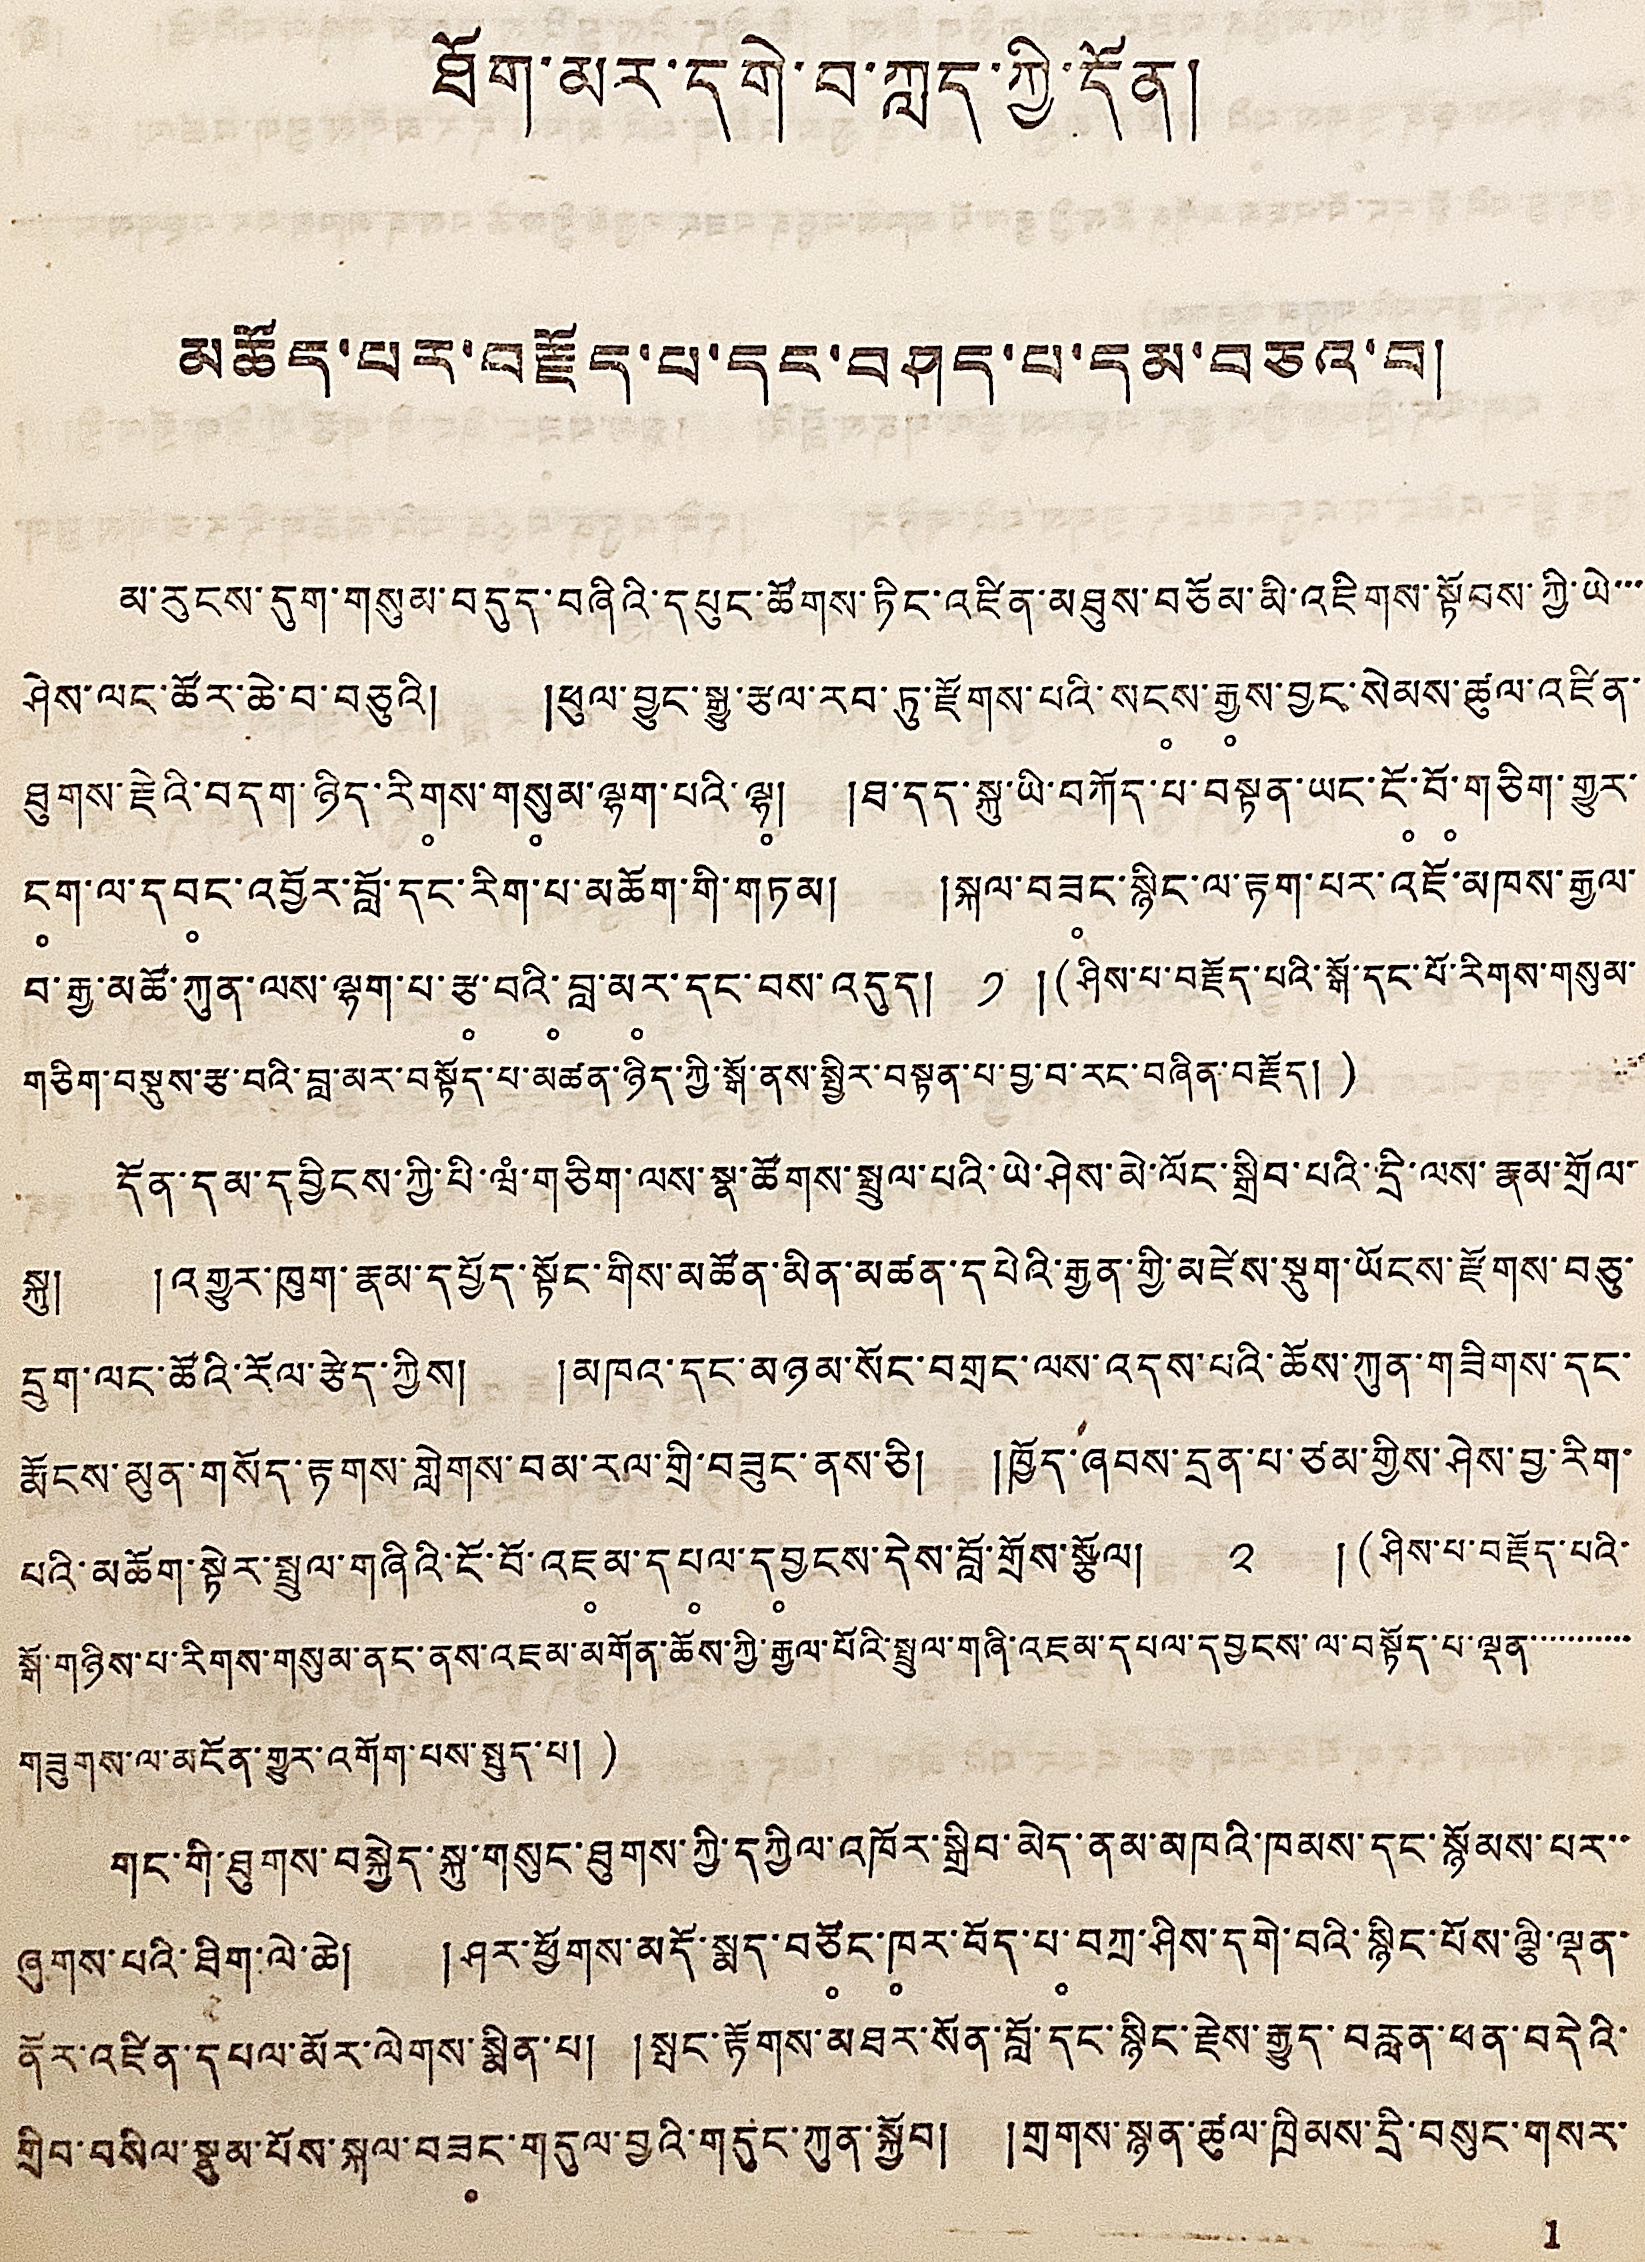 ཐོག་མར་དགེ་བ་ཀླད་ཀྱི་དོན།
མཆོད་པར་བརྗོད་པ་དང་བཤད་པ་དམ་བཅའ་བ།
མ་རུངས་དུག་གསུམ་བདུད་བཞིའི་དཔུང་ཚོགས་ཏིང་འཛིན་མཐུས་བཅོམ་མི་འཇིགས་སྟོབས་ཀྱི་ཡེ་་་
ཤེས་ལང་ཚོར་ཆེ་བ་བཅུའི། །ཕུལ་བྱུང་སྒྱུ་རྩལ་རབ་ཏུ་རྫོགས་པའི་སངས༷་རྒྱས༷་བྱང་སེམས་ཚུལ་འཛིན་
ཐུགས་རྗེའི་བདག་ཉིད་རིགས༷་གསུམ༷་ལྷག་པའི་ལྷ༷། །ཐ་དད་སྐུ་ཡི་བཀོད་པ་བསྟན་ཡང་ངོ༷་བོ༷་གཅིག་གྱུར་
ངག༷་ལ་དབང༷་འབྱོར་བློ་དང་རིག་པ་མཆོག་གི་གཏམ། །སྐལ་བཟང༷་སྙིང་ལ་རྟག་པར་འཇོ་མཁས་རྒྱལ་
བ་རྒྱ་མཚོ་ཀུན་ལས་ལྷག་པ་རྩ༷་བའི༷་བླ་མར༷་དང་བས་འདུད། ༡ །(ཤིས་པ་བརྗོད་པའི་སྒོ་དང་པོ་རིགས་གསུམ་
གཅིག་བསྡུས་རྩ་བའི་བླ་མར་བསྟོད་པ་མཚན་ཉིད་ཀྱི་སྒོ་ནས་སྤྱིར་བསྟན་པ་བྱ་བ་རང་བཞིན་བརྗོད། )
དོན་དམ་དབྱིངས་ཀྱི་པི་ཝཾ་གཅིག་ལས་སྣ་ཚོགས་སྤྲུལ་པའི་ཡེ་ཤེས་མེ་ལོང་སྒྲིབ་པའི་དྲི་ལས་རྣམ་གྲོལ་
སྐུ། །འགྱུར་ཁུག་རྣམ་དཔྱོད་སྟོང་གིས་མཚོན་མིན་མཚན་དཔེའི་རྒྱན་གྱི་མཛེས་སྡུག་ཡོངས་རྫོགས་བཅུ་
དྲུག་ལང་ཚོའི་རོལ་རྩེད་ཀྱིས། །མཁའ་དང་མཉམ་སོང་བགྲང་ལས་འདས་པའི་ཆོས་ཀུན་གཟིགས་དང་
རྨོངས་མུན་གསོད་རྟགས་གླེགས་བམ་རལ་གྲི་བཟུང་ནས་ཅི། །ཁྱོད་ཞབས་དྲན་པ་ཙམ་གྱིས་ཤེས་བྱ་རིག་
པའི་མཆོག་སྟེར་སྤྲུལ་གཞིའི་ངོ་བོ་འཇམ༷་དཔལ༷་དབྱངས༷་དེས་བློ་གྲོས་སྩོལ། ༢ །(ཤིས་པ་བརྗོད་པའི་
སྒོ་གཉིས་པ་རིགས་གསུམ་ནང་ནས་འཇམ་མགོན་ཆོས་ཀྱི་རྒྱལ་པོའི་སྤྲུལ་གཞི་འཇམ་དཔལ་དབྱངས་ལ་བསྟོད་པ་ལྡན་་་་་་་་་་་
གཟུགས་ལ་མངོན་གྱུར་འགོག་པས་སྤྲུད་པ། )
གང་གི་ཐུགས་བསྐྱེད་སྐུ་གསུང་ཐུགས་ཀྱི་དཀྱིལ་འཁོར་སྒྲིབ་མེད་ནམ་མཁའི་ཁམས་དང་སྙོམས་པར་་
ཞུགས་པའི་ཐིག་ལེ་ཆེ། །ཤར་ཕྱོགས་མདོ་སྨད་བཙོང༷་ཁར༷་བོད་པ༷་བཀྲ་ཤིས་དགེ་བའི་སྙིང་པོས་ལྕི་ལྡན་
ནོར་འཛིན་དཔལ་མོར་ལེགས་སྨིན་པ། །སྤང་རྟོགས་མཐར་སོན་བློ་དང་སྙིང་རྗེས་རྒྱུད་བརླན་ཕན་བདེའི་
གྲིབ་བསིལ་སྣུམ་པོས་སྐལ་བཟང༷་གདུལ་བྱའི་གདུང་ཀུན་སྐྱོབ། །གྲགས་སྙན་ཚུལ་ཁྲིམས་དྲི་བསུང་གསར་
1